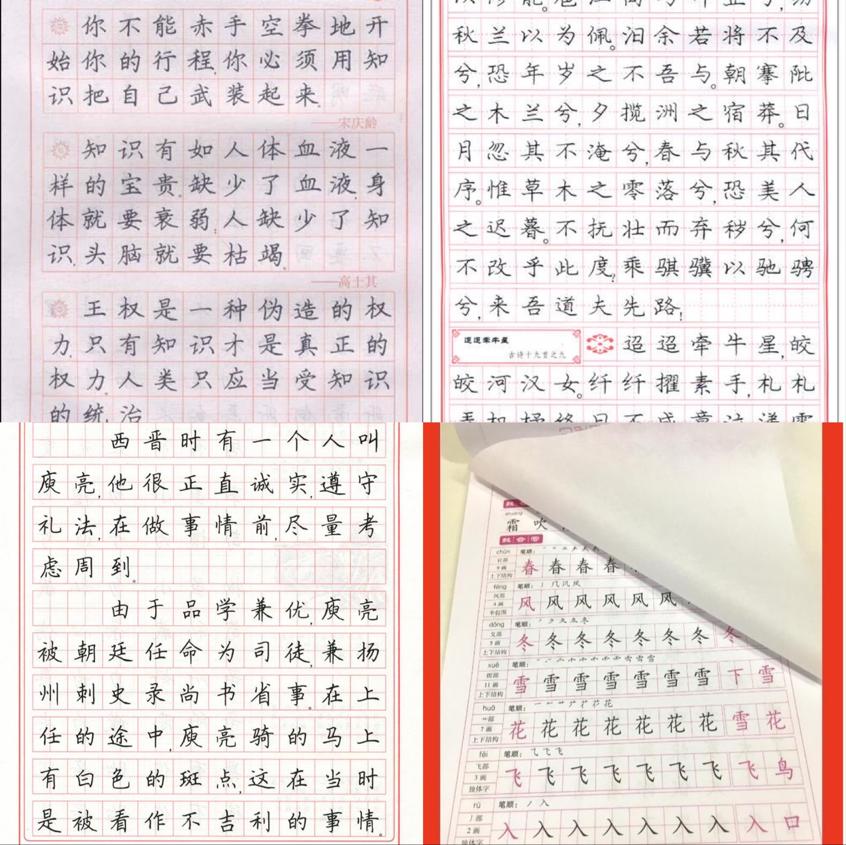 你不能赤手空拳地开
始你的行程,你必须用知
识把自己武装起来.
——宋庆龄
知识有如人体血液一
样的宝贵,缺少了血液,身
体就要衰弱,人缺少了知
识,头脑就要枯竭.
——高士其
王权是一种伪造的权
力,只有知识才是真正的
权力,人类只应当受知识
的统治
秋兰以为佩。汩余若将不及
兮,恐年岁之不吾与。朝搴阰
之木兰兮,夕揽洲之宿莽。日
月忽其不淹兮,春与秋其代
序。惟草木之零落兮,恐美人
之迟暮。不抚壮而弃秽兮,何
不改乎此度?乘骐骥以驰骋
兮,来吾道夫先路!
迢迢牵牛星
古诗十九首之九
迢迢牵牛星,皎
皎河汉女。纤纤擢素手,札札
西晋时有一个人叫
庾亮,他很正直诚实,遵守
礼法,在做事情前,尽量考
虑周到.
由于品学兼优,庾亮
被朝廷任命为司徒,兼扬
州刺史录尚书省事。在上
任的途中,庾亮骑的马上
有白色的斑点,这在当时
是被看作不吉利的事情。
霜吹
chūn 笔顺:
9画
上下结构
春春春春
fēng 笔顺:
风部
4画
风风风风风风
dōng 笔顺:
夂部
5画
上下结构
冬冬冬冬冬冬冬冬
xuě 笔顺:
雨部
11画
上下结构
雪雪雪雪雪雪下雪
huā 笔顺:
艹部
7画
上下结构
花花花花花花花雪花
fēi 笔顺:
飞部
3画
独体字
飞飞飞飞飞飞飞飞鸟
rù 笔顺:
2画
独体字
入入入入入入入入口